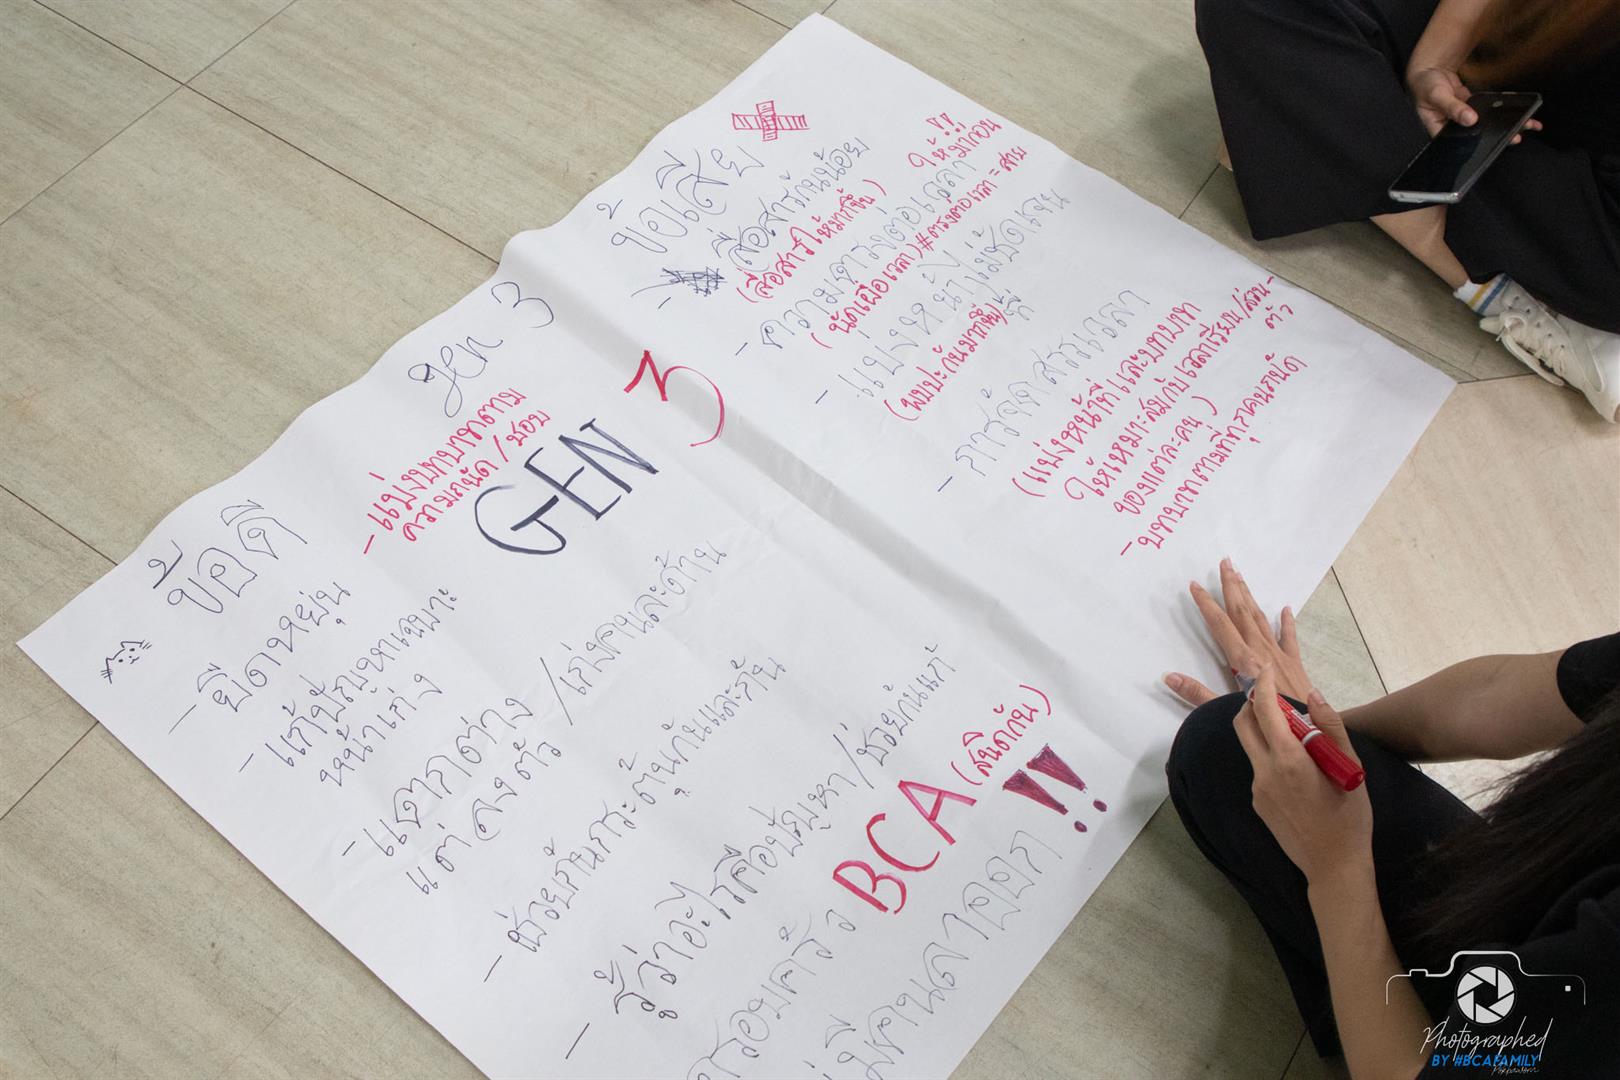 ข้อดี
- ยืดหยุ่น
- แก้ปัญหาเฉพาะ
หน้าเก่ง
- แตกต่าง / เก่งคนละด้าน
แต่ลงตัว
- ช่วยกันกระตุ้นกันและกัน
- รู้ว่าอะไรคือปัญหา/ช่วยกันแก้
ครอบครัว BCA (สนิดกัน)
มีคนลาออก !!
gen 3
- แบ่งบทบาทตาม
ความถนัด / ชอบ
GEN 3
ข้อเสีย
- สื่อสารกันน้อย
(สื่อสารให้มากขึ้น)
- ความตรงต่อเวลา
(นัดเผื่อเวลา) #ตรงต่อเวลา = สาย
ให้มาก่อน !!
- แบ่งหน้าที่ไม่ชัดเจน
(พบปะกันมากขึ้น)
- การจัดสรรเวลา
(แบ่งหน้าที่และบทบาท
ให้เหมาะสมกับเวลาเรียน/ส่วน-
ตัว
ของแต่ละคน)
- บทบาทตามที่ทุกคนถนัด
Photographed
BY #BCAFAMILY